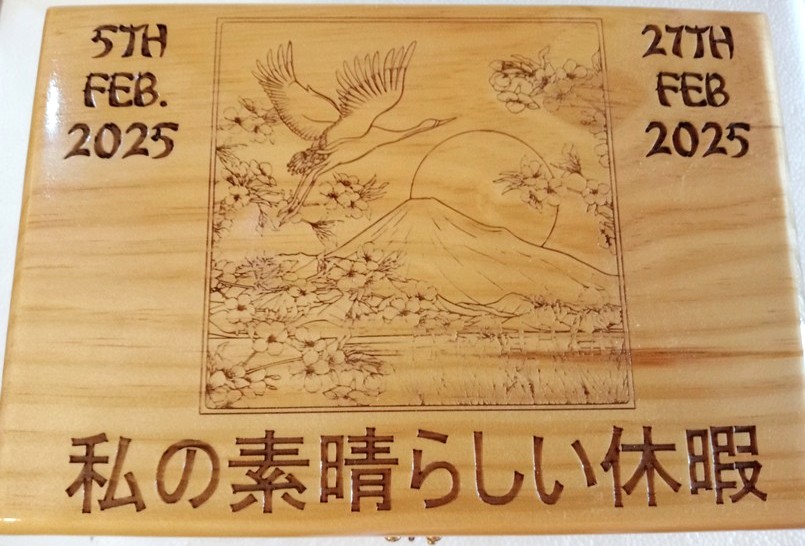 5TH
FEB.
2025
27TH
FEB
2025
私の素晴らしい休暇